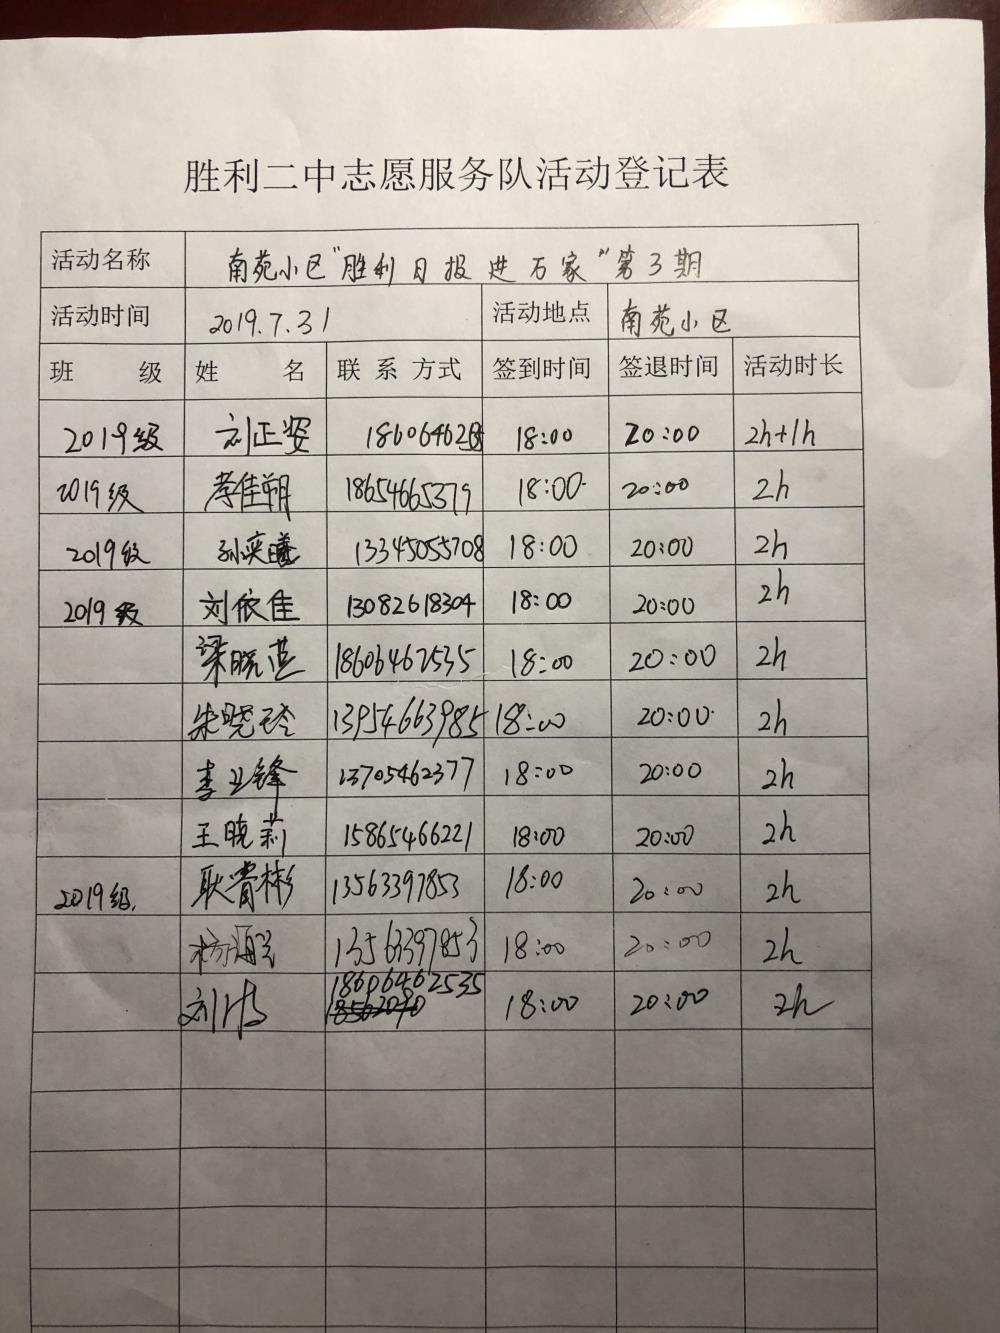 胜利二中志愿服务队活动登记表
活动名称 南苑小区"胜利日报进万家"第3期
活动时间 2019.7.31 活动地点 南苑小区
班 级 姓 名 联系方式 签到时间 签退时间 活动时长
2019级 刘正姿 18:00 20:00 2h+1h
2019级 李佳朔 18654665379 18:00 20:00 2h
2019级 孙奕曦 13345055708 18:00 20:00 2h
2019级 刘依佳 13082618304 18:00 20:00 2h
梁晓燕 18606462535 18:00 20:00 2h
朱晓玲 13954663985 18:00 20:00 2h
李卫锋 13705462377 18:00 20:00 2h
王晓莉 15865466221 18:00 20:00 2h
2019级. 耿霄彬 13563397853 18:00 20:00 2h
杨 13563397853 18:00 20:00 2h
刘 18606462535 18:00 20:00 2h